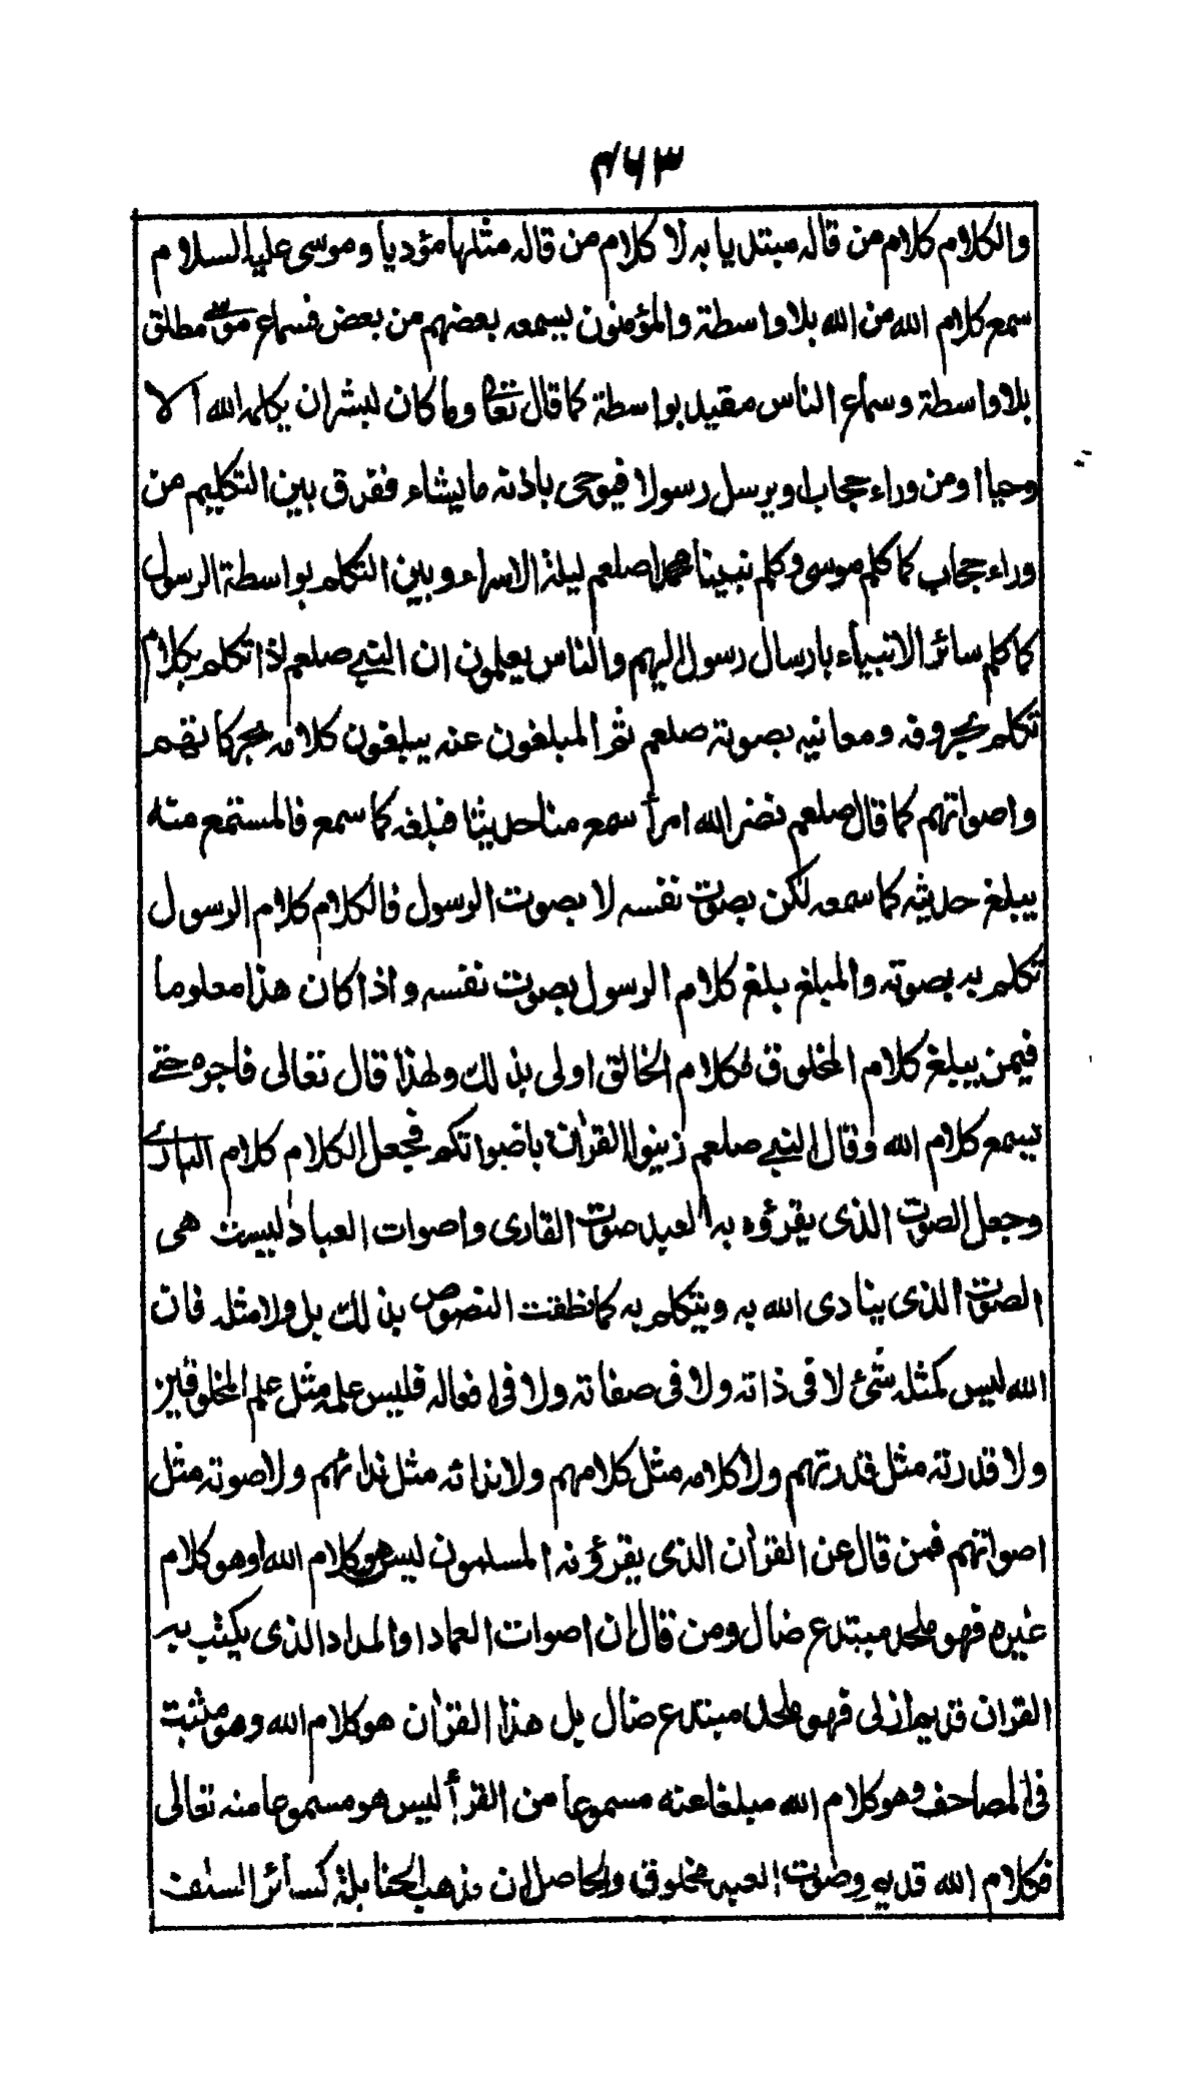 ۴۶۳
والكلام كلام من قاله مبتديا به لا كلام من قاله مثلها مؤديا وموسى عليه السلام
سمع كلام الله من الله بلا واسطة والمؤمنون يسمعه بعضهم من بعض فسماع موسى مطلق
بلا واسطة وسماع الناس مقيد بواسطة كما قال تعالى وما كان لبشر ان يكلمه الله الا
وحيا او من وراء حجاب او يرسل رسولا فيوحى باذنه ما يشاء ففرق بين التكليم من
وراء حجاب كما كلم موسى وكلم نبينا محمدا صلعم ليلة الاسراء وبين التكلم بواسطة الرسول
كما كلم سائر الانبياء بارسال رسول اليهم والناس يعلمون ان النبي صلعم اذا تكلم بكلام
تكلم بحروفه ومعانيه بصوته صلعم ثم المبلغون عنه يبلغون كلامه بحركاتهم
واصواتهم كما قال صلعم نضر الله امرأ سمع منا حديثا فبلغه كما سمع فالمستمع منه
يبلغ حديثه كما سمعه لكن بصوت نفسه لا بصوت الرسول فالكلام كلام الرسول
تكلم به بصوته والمبلغ بلغ كلام الرسول بصوت نفسه واذا كان هذا معلوما
فيمن يبلغ كلام المخلوق فكلام الخالق اولى بذلك ولهذا قال تعالى فاجره حتى
يسمع كلام الله وقال النبي صلعم زينوا القرآن باصواتكم فجعل الكلام كلام البارى
وجعل الصوت الذى يقرؤه به العبد صوت القارى واصوات العباد ليست هى
الصوت الذى ينادى الله به ويتكلم به كما نطقت النصوص بذلك بل ولا مثله فان
الله ليس كمثله شئ لا فى ذاته ولا فى صفاته ولا فى افعاله فليس علمه مثل علم المخلوقين
ولا قدرته مثل قدرتهم ولا كلامه مثل كلامهم ولا ندائه مثل ندائهم ولا صوته مثل
اصواتهم فمن قال عن القرآن الذى يقرؤنه المسلمون ليس هو كلام الله او هو كلام
غيره فهو ملحد مبتدع ضال ومن قال ان اصوات العباد او المداد الذى يكتب به
القرآن قديم ازلى فهو ملحد مبتدع ضال بل هذا القرآن هو كلام الله وهو مثبت
فى المصاحف وهو كلام الله مبلغا عنه مسموعا من القرأ ليس هو مسموعا منه تعالى
فكلام الله قديم وصوت العبد مخلوق والحاصل ان مذهب الحنابلة كسائر السلف